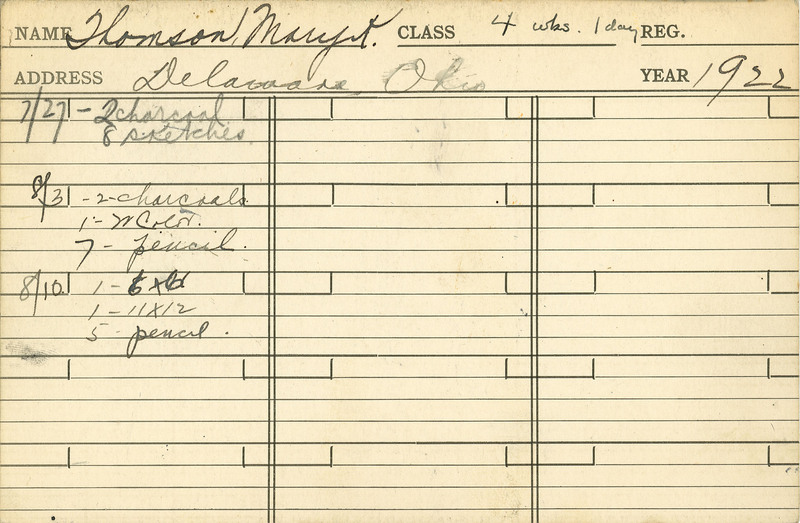 NAME Thomson, Mary CLASS 4 wks. 1 day REG.
ADDRESS Delaware Ohio YEAR 1922
7/27 - 2 charcoal
8 sketches.
8/3 - 2 - charcoals
1 - W Color.
7 - pencil.
8/10 1 -
1 - 11 x 12
5 - pencil.